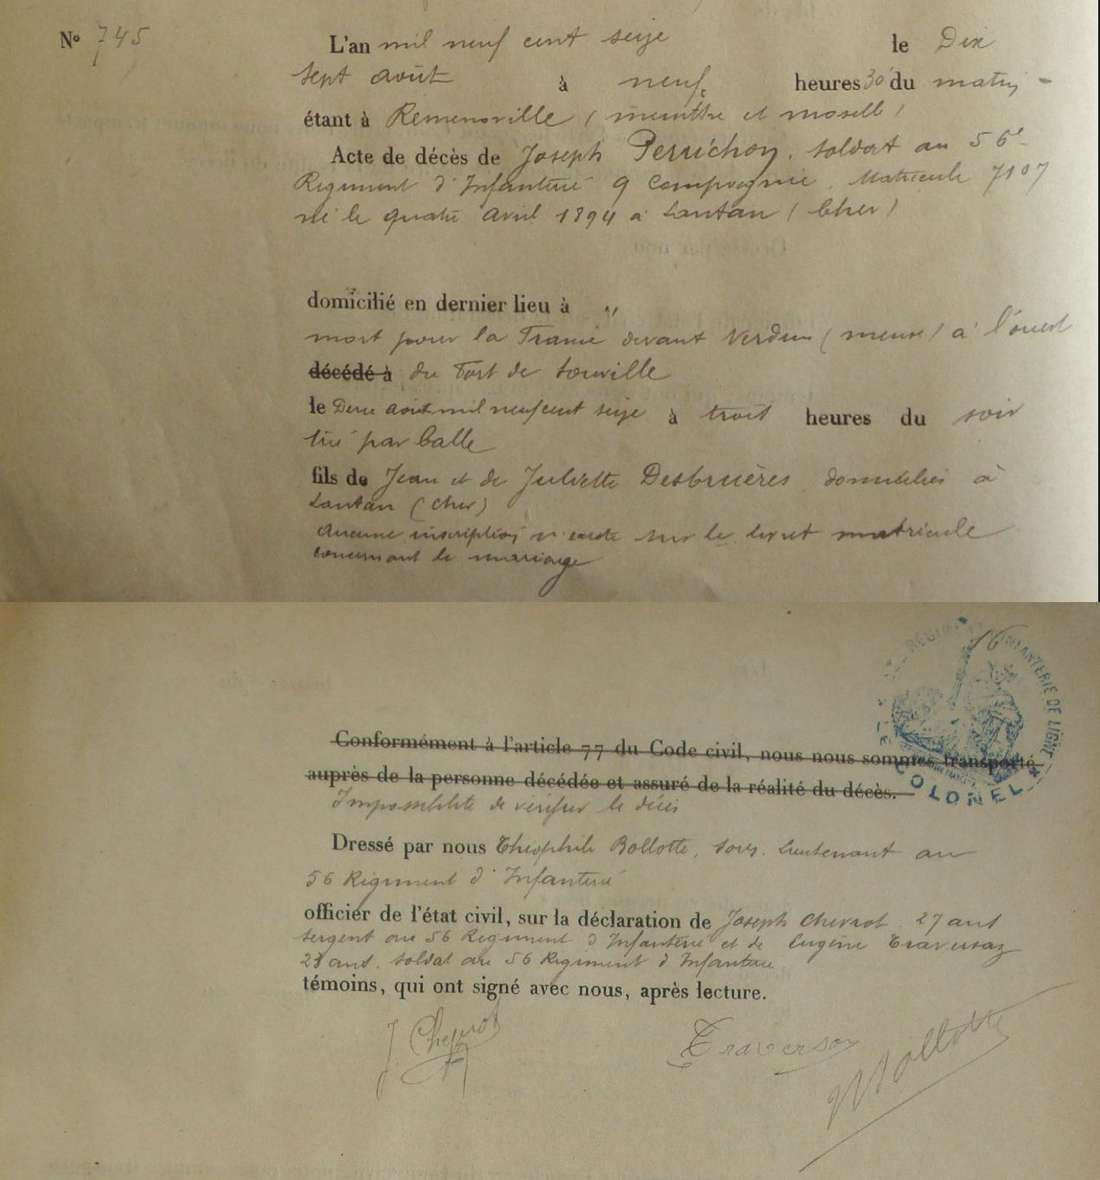 N° 745
L'an mil neuf cent seize le Dix
sept août à neuf heures 30 du matin
étant à Remenoville (meurthe et moselle)
Acte de décès de Joseph Perrichon, soldat au 56e
Regiment d'Infanterie 9 Compagnie, Matricule 7107
né le quatre Avril 1894 à Lantan (Cher)
domicilié en dernier lieu à "
mort pour la France devant Verdun (meuse) à l'ouest
décédé à du Fort de Souville
le Deux août mil neuf cent seize à trois heures du soir
tué par balle
fils de Jean et de Juliette Desbruères domiciliés à
Lantan (Cher)
Aucune inscription n'existe sur le livret matricule
concernant le mariage
RÉGIMENT D'INFANTERIE DE LIGNE
COLONEL
Conformément à l'article 77 du Code civil, nous nous sommes transporté
auprès de la personne décédée et assuré de la réalité du décès.
Impossibilité de vérifier le décès
Dressé par nous Théophile Bollotte, sous-Lieutenant au
56 Regiment d'Infanterie
officier de l'état civil, sur la déclaration de Joseph Chevrot, 27 ans
sergent au 56 Regiment d'Infanterie et de Eugène Traversaz
28 ans, soldat au 56 Regiment d'Infanterie
témoins, qui ont signé avec nous, après lecture.
J. Chevrot Traversaz Bollotte